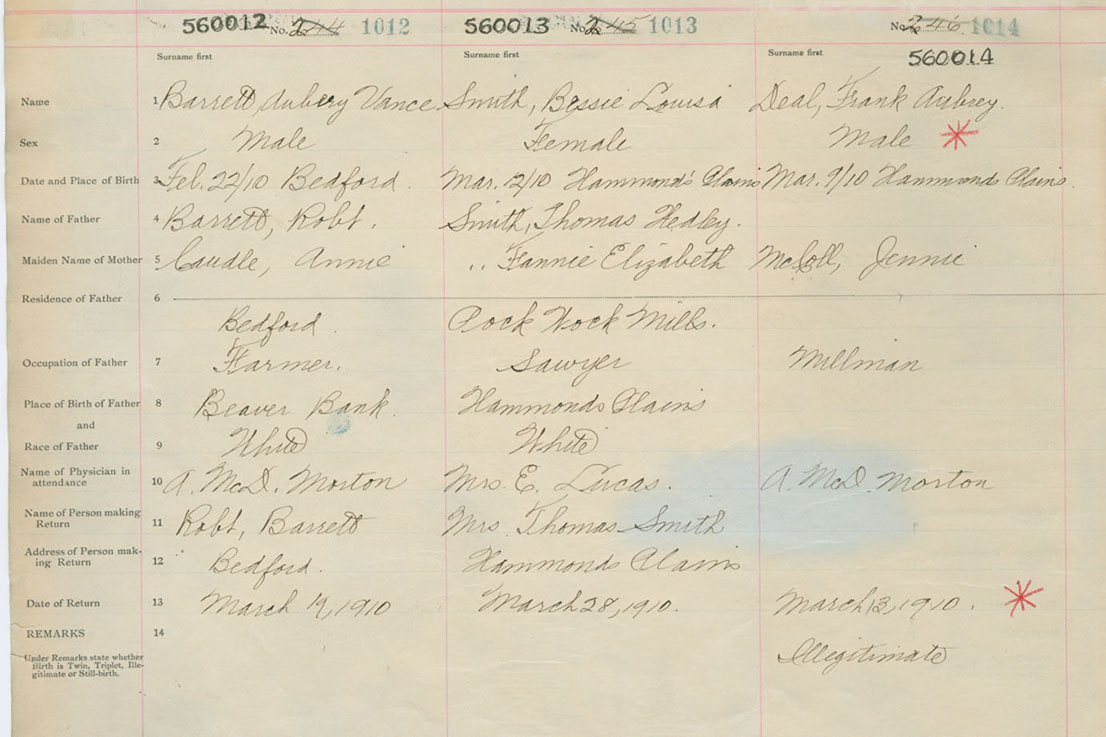 560012 No. 244 1012 560013 No. 245 1013 No. 246 1014
Surname first Surname first Surname first 560014
Name 1 Barrett, Aubery Vance Smith, Bessie Louisa Deal, Frank Aubrey.
Sex 2 Male Female Male
Date and Place of Birth 3 Feb. 22/10 Bedford. Mar. 12/10 Hammond's Plains Mar. 9/10 Hammonds Plains.
Name of Father 4 Barrett, Robt. Smith, Thomas Hedley.
Maiden Name of Mother 5 Caudle, Annie " Fannie Elizabeth McColl, Jennie
Residence of Father 6
Bedford. Pock Wock Mills.
Occupation of Father 7 Farmer. Sawyer Millman
Place of Birth of Father 8 Beaver Bank. Hammonds Plains
and
Race of Father 9 White White
Name of Physician in
attendance 10 A. McD. Morton Mrs. E. Lucas. A. McD. Morton
Name of Person making
Return 11 Robt, Barrett Mrs. Thomas Smith
Address of Person mak-
ing Return 12 Bedford. Hammonds Plains
Date of Return 13 March 19, 1910 March 28, 1910. March 13, 1910.
REMARKS 14
Under Remarks state whether
Birth is Twin, Triplet, Ille-
gitimate or Still-birth. Illegitimate